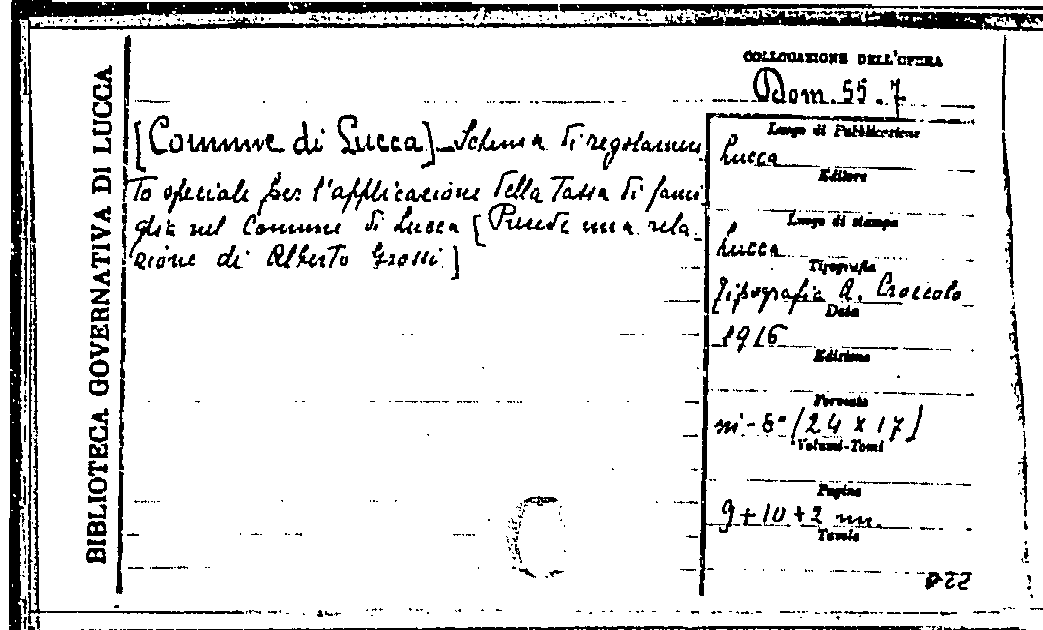 BIBLIOTECA GOVERNATIVA DI LUCCA
COLLOCAZIONE DELL'OPERA
Dom. 55. 7
[Comune di Lucca] - Schema di regolamen
to speciale per l'applicazione della Tassa di fami
glia nel Comune di Lucca [Precede una rela
zione di Alberto Grossi.]
Luogo di Pubblicazione
Lucca
Editore
Luogo di stampa
Lucca
Tipografia
Tipografia A. Croccolo
Data
1916
Edizione
Formato
in-8° (24 x 17)
Volumi-Tomi
Pagine
9+10+2 nn.
Tavole